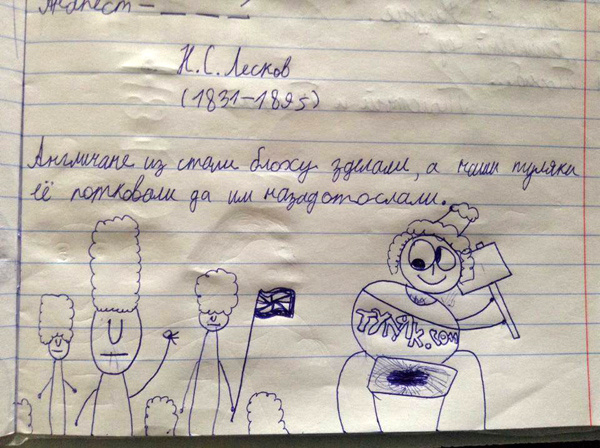 Анапест –
Н. С. Лесков
(1831–1895)
Англичане из стали блоху зделали, а наши туляки
её потковали да им назадотослали.
ТУЛЯК.com